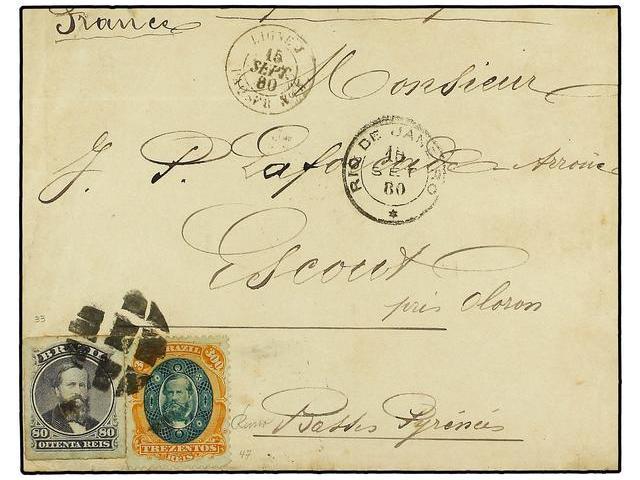 France
LIGNE J
15
SEPT.
80
Monsieur
RIO DE JANEIRO
15
SET
80
J. P.
Escout
près Oloron
33
BRAZIL
80 80
OITENTA REIS
BRAZIL
300
TREZENTOS
REIS
47
Basses Pyrénées